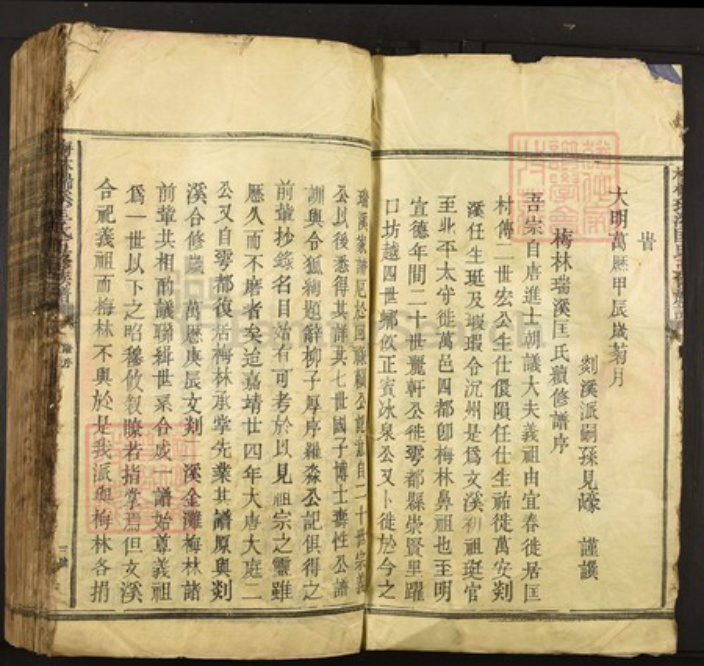 旹
大明萬歷甲辰歲菊月
剡溪派嗣孫見 謹譔
梅林瑞溪匡氏續修譜序
吾宗自唐進士朝議大夫義祖由宜春徙居匡
村傳二世宏公生仕儇隕任仕生祐徙萬安剡
溪任生珽及瑕瑕令沅州是爲文溪初祖珽官
至北平太守徙萬邑四都卽梅林鼻祖也至明
宣德年間二十世麗軒公徙雩都縣崇賢里躍
口坊越四世鄉飲正賓冰泉公又卜徙於今之
瑞溪 自二十世宗義
公以後悉得其詳其七世國子博士壽性公譜
訓與合狐綯題辭柳子厚序羅淼公記俱得之
前輩抄錄名目始有可考於以見祖宗之靈雖
歷久而不磨者矣迨嘉靖廿四年大唐大庭二
公又自雩都復居梅林承掌先業其譜原與剡
溪合修歲 萬歷庚辰文剡 溪金灘梅林諸
前輩共相酌議聯緝世系合成一譜始尊義祖
爲一世以下之昭穆攸叙瞭若指掌焉但文溪
合祀義祖而梅林不與於是我派與梅林各捐